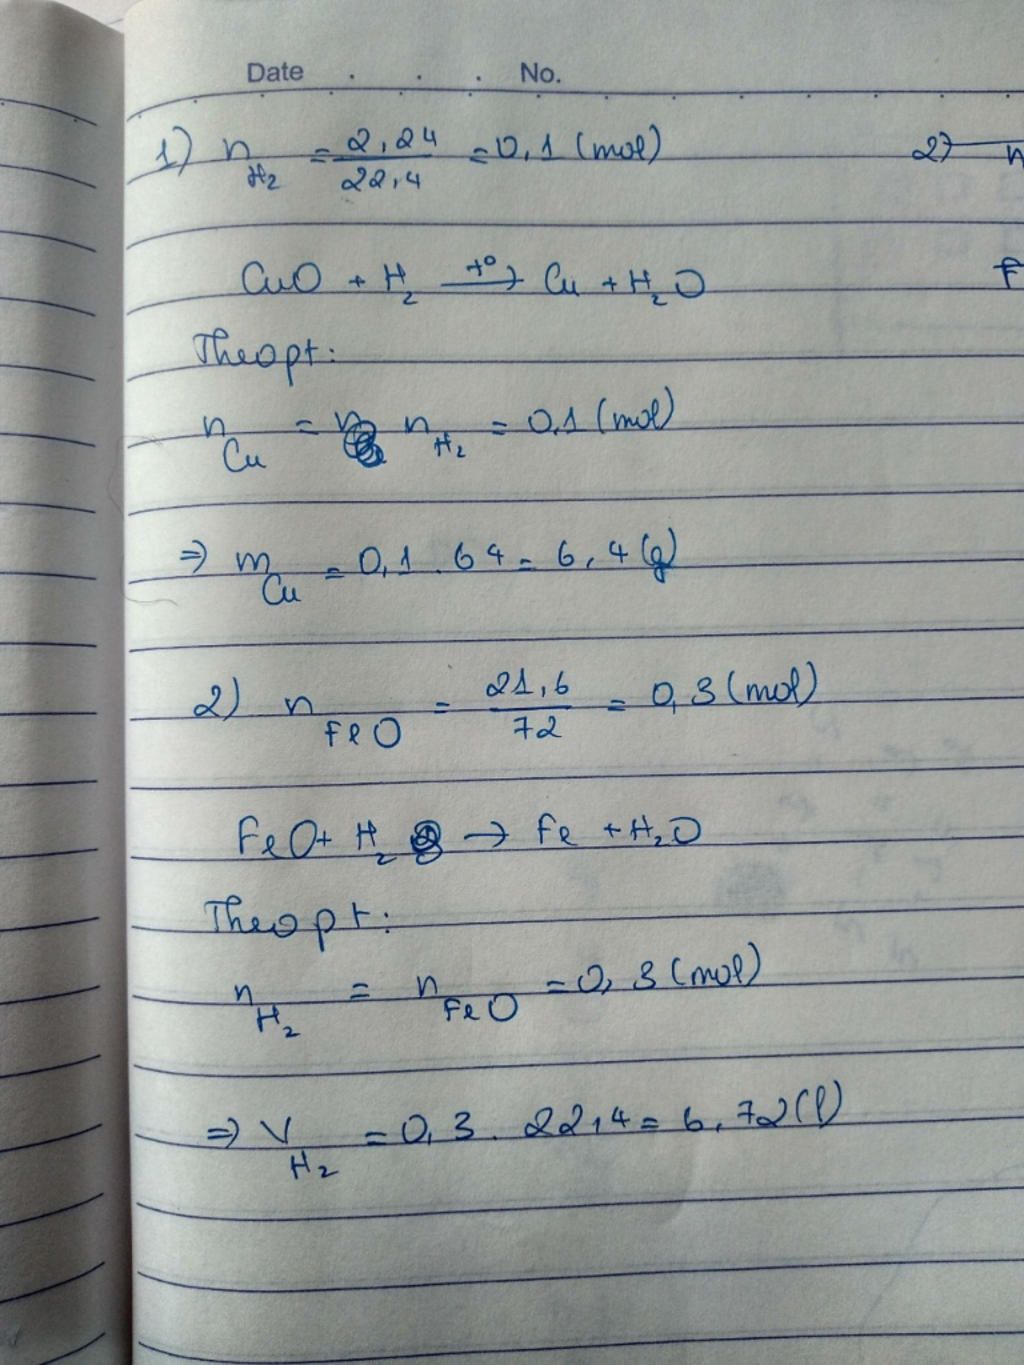 Date . . . No.
1) n H₂ = 2,24 / 22,4 = 0,1 (mol)
2) n
CuO + H₂ —t°→ Cu + H₂O
F
Theo pt:
n Cu = n H₂ = 0,1 (mol)
=> m Cu = 0,1 . 64 = 6,4 (g)
2) n FeO = 21,6 / 72 = 0,3 (mol)
FeO + H₂ → Fe + H₂O
Theo pt:
n H₂ = n FeO = 0,3 (mol)
=> V H₂ = 0,3 . 22,4 = 6,72 (l)